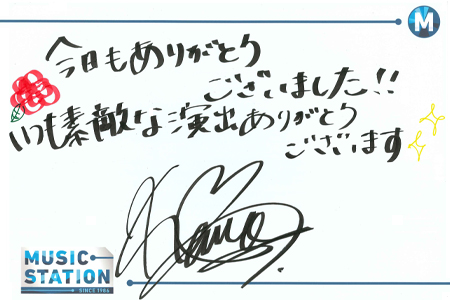 M
今日もありがとう
ございました!!
いつも素敵な演出ありがとう
ございます
MUSIC
STATION
SINCE 1986